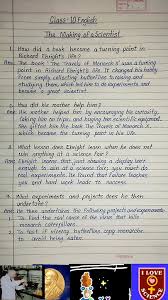 Class-10 English
The Making of a Scientist
1. How did a book become a turning point in
Richard Ebright's life?
Ans: The book "The Travels of Monarch X" was a turning
point in Richard Ebright's life. It changed his hobby
from simply collecting butterflies to raising and
studying them, which led him to do experiments and
become a great scientist.
2. How did his mother help him?
Ans: His mother helped him by encouraging his curiosity,
taking him on trips, and buying him scientific equipment.
She got him the book The Travels of Monarch X,
which became the turning point in his life.
3. What lesson does Ebright learn when he does not
win anything at a science fair?
Ans: Ebright learns that just showing a display isn't
enough to win at a science fair; you must do
real experiments. He found that failure teaches
you and hard work leads to success.
4. What experiments and projects does he then
undertake?
Ans: He then undertakes the following projects and experiments:
To find the real cause of the viral disease that kills
monarch caterpillars.
To test if viceroy butterflies copy monarchs
to avoid being eaten.
I LOVE